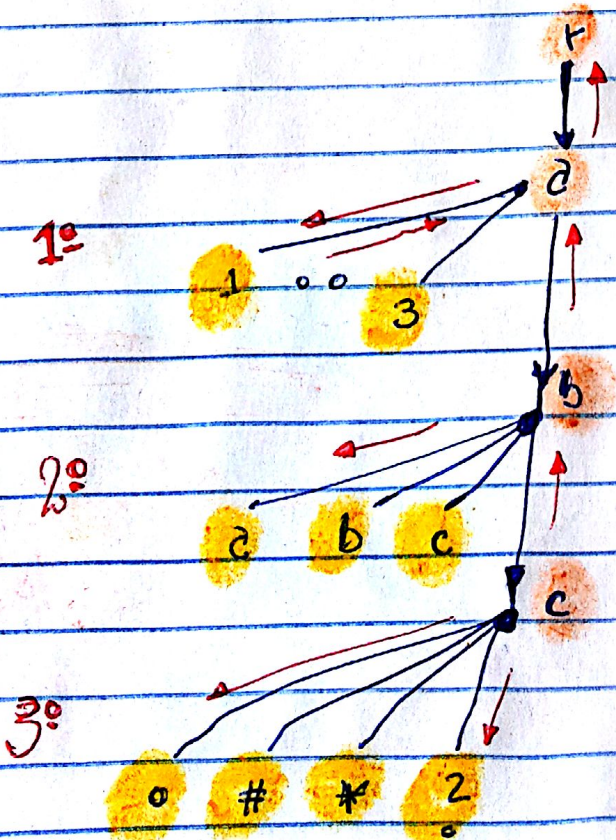 r
a
1º
1 o o 3
b
2º
a b c
c
3º
o # * 2